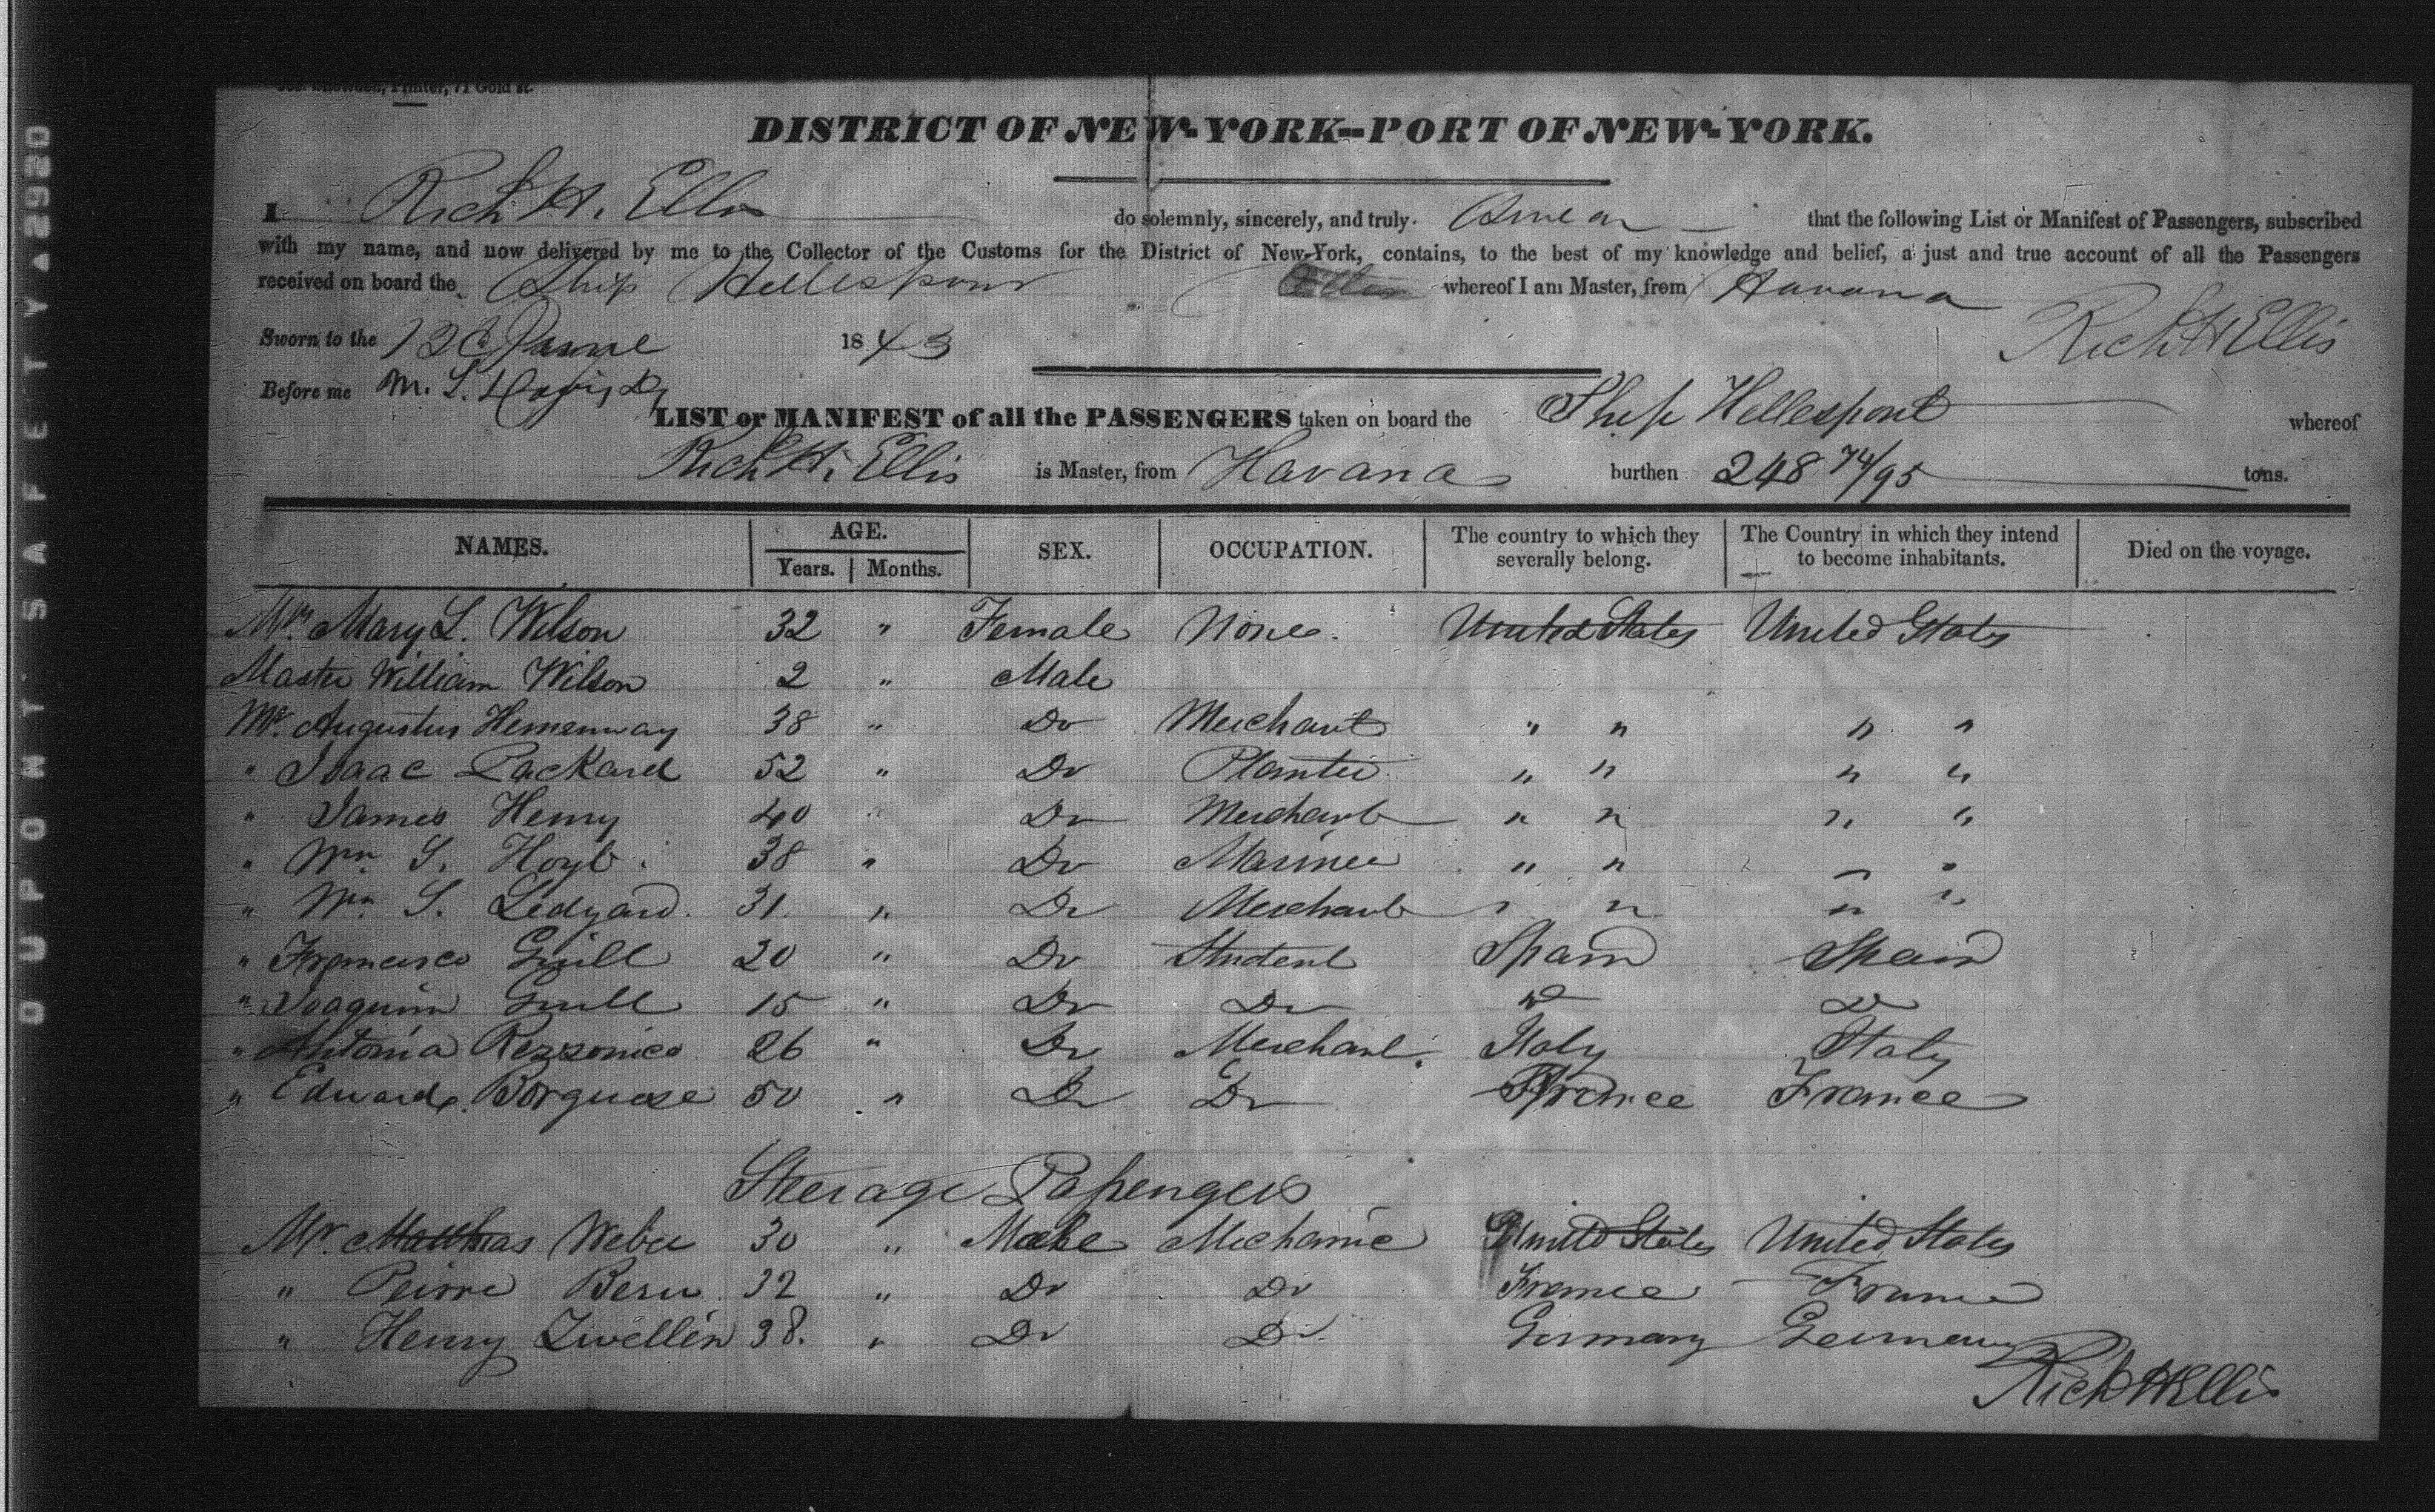 Jos. Snowden, Printer, 71 Gold st.
DISTRICT OF NEW-YORK--PORT OF NEW-YORK.
I Richd H. Ellis do solemnly, sincerely, and truly swear that the following List or Manifest of Passengers, subscribed
with my name, and now delivered by me to the Collector of the Customs for the District of New-York, contains, to the best of my knowledge and belief, a just and true account of all the Passengers
received on board the Ship Hellespont whereof I am Master, from Havana
Richd H Ellis
Sworn to the 12d June 1843
Before me M. L. Davis
LIST or MANIFEST of all the PASSENGERS taken on board the Ship Hellespont whereof
Richd H. Ellis is Master, from Havana burthen 248 74/95 tons.
NAMES. AGE. SEX. OCCUPATION. The country to which they severally belong. The Country in which they intend to become inhabitants. Died on the voyage.
Years. Months.
Mrs. Mary L. Wilson 32 " Female None. United States United States
Master William Wilson 2 " Male
Mr. Augustus Hemenway 38 " Do Merchant " " " "
" Isaac Packard 52 " Do Planter " " " "
" James Henry 40 " Do Merchant " " " "
" Wm S. Hoyt 38 " Do Mariner " " " "
" Wm S. Ledyard. 31 " Do Merchant " " " "
" Francisco Guill 20 " Do Student Spain Spain
" Joaquim Guill 15 " Do Do Do Do
" Antonia Rezzonico 26 " Do Merchant Italy Italy
" Edward Borguese 50 " Do Do France France
Steerage Passengers
Mr. Matthias Weber 30 " Male Mechanic United States United States
" Peirre 32 " Do Do France France
" Henry Zwellen 38. " Do Do Germany Germany
Richd H Ellis
DUPONT SAFETY ▲ 2920